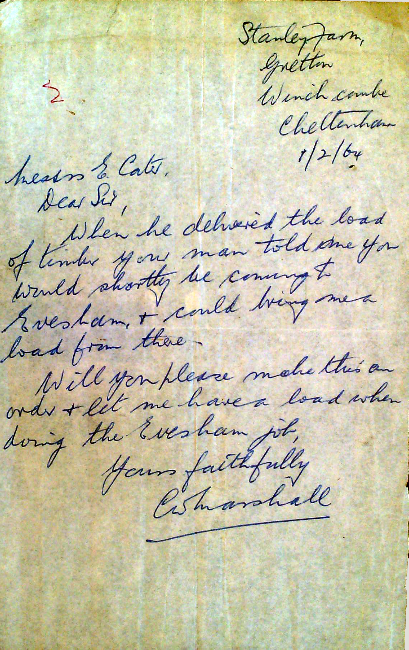 Stanley Farm,
Gretton
Winchcombe
Cheltenham
1/2/64
Messrs E. Cater.
Dear Sir,
When he delivered the load
of timber your man told me you
would shortly be coming to
Evesham, & could bring me a
load from there.
Will you please make this an
order & let me have a load when
doing the Evesham job,
Yours faithfully
CW Marshall